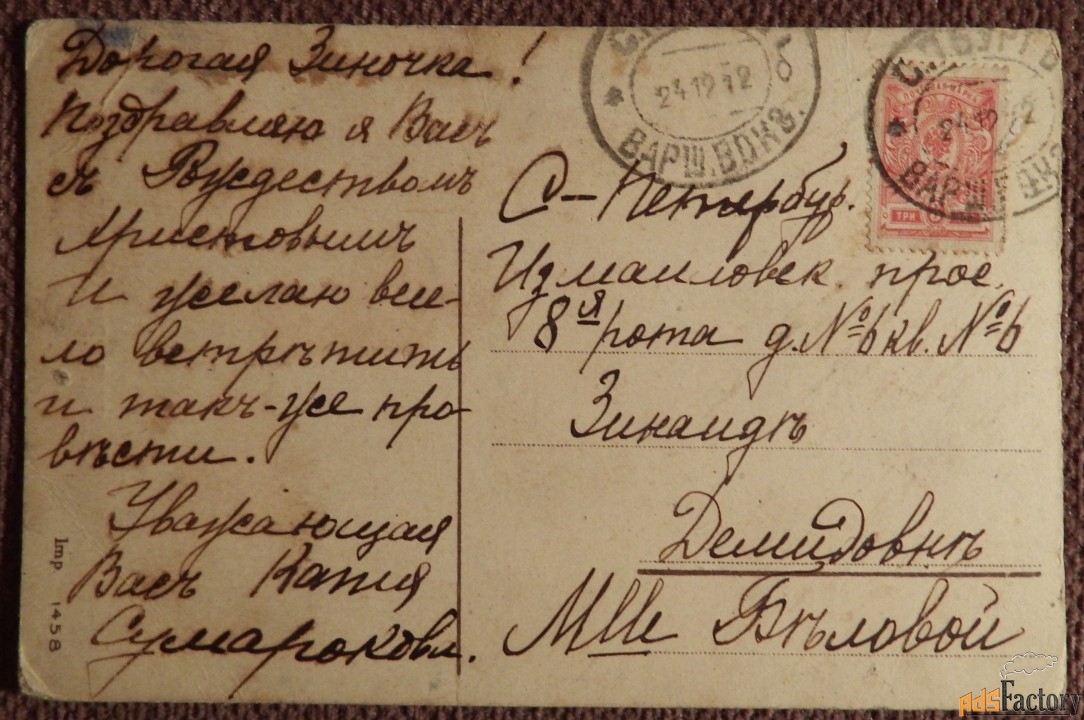 Дорогая Зиночка!
Поздравляю я Васъ
съ Рождествомъ
Христовымъ
И желаю весе-
ло встрѣтить
и такъ-же про-
вѣсти.
Уважающая
Васъ Катя
Сумарокова.
Imp 1458
24 12 12
б
ВАРШ.ВОКЗ.
С.П.БУРГЪ
24 12 12
ВАРШ.
ТРИ
С-Петербур.
Измаиловск. прос.
8ая рота д.№6 кв.№6
Зинаидѣ
Демидовнѣ
Бѣловой
AdsFactory